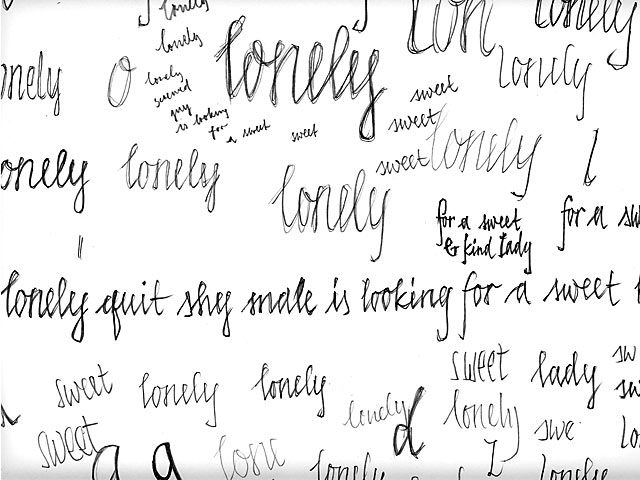 lonely
lonely
lonely
lonely
lonely
lonely
sweet
for a sweet
sweet
sweet
is looking
lonely
lonely
lonely
sweet
lonely
for a sweet
& kind lady
for a sw
lonely quit shy male is looking for a sweet
sweet
lonely
lonely
sweet
lady
lonely
lonely
swe
sweet
d
a
a
lonely
lonely